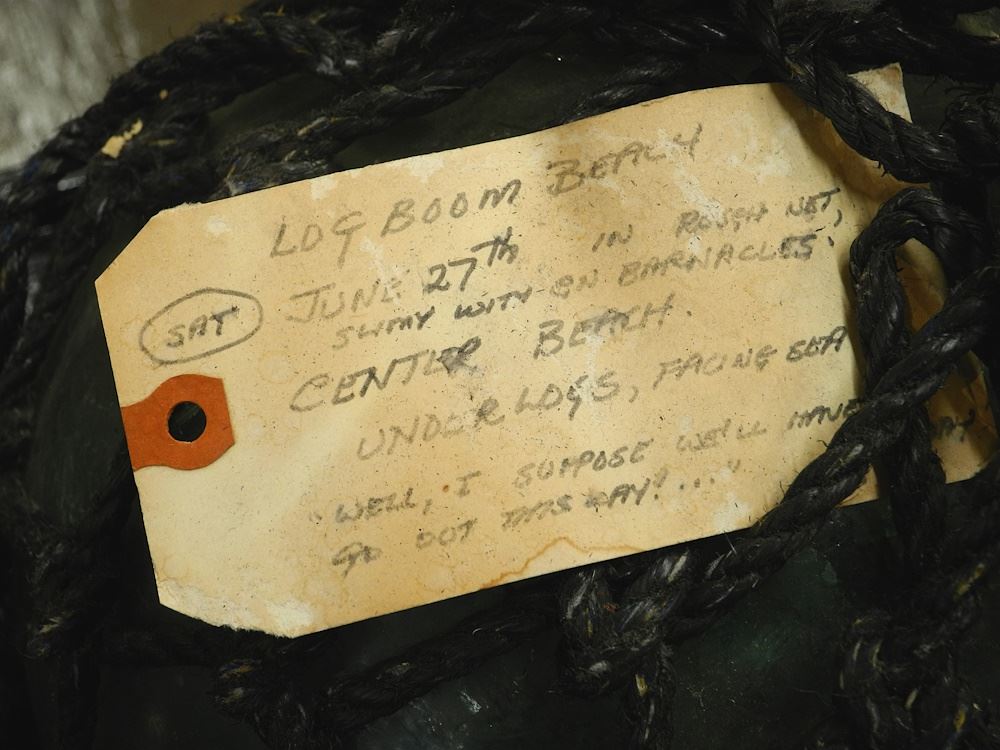 LOG BOOM BEACH
SAT JUNE 27th IN ROUGH NET,
SLIMY WITH GN BARNACLES.
CENTER BEACH.
UNDER LOGS, FACING SEA
"WELL, I SUPPOSE WE'LL HAVE
GO OUT THIS WAY!..."